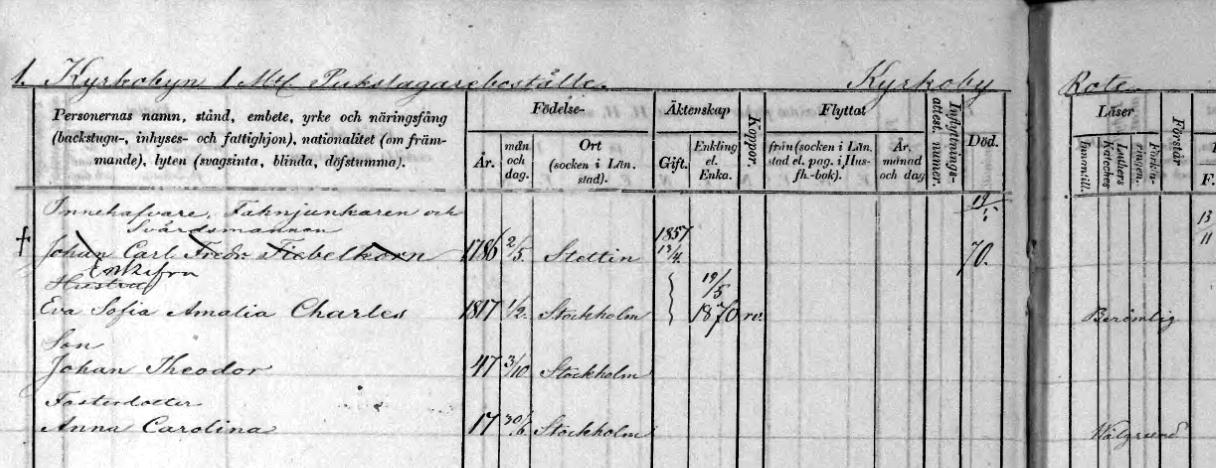 1. Kyrkobyn 1 Mtl Pukslagareboställe. Kyrkoby Rote
Personernas namn, stånd, embete, yrke och näringsfång
(backstugu-, inhyses- och fattighjon), nationalitet (om främ-
mande), lyten (svagsinta, blinda, döfstumma).
Födelse-
År.
mån
och
dag.
Ort
(socken i Län.
stad).
Äktenskap
Gift.
Enkling
el.
Enka.
Koppor.
Flyttat
från (socken i Län.
stad el. pag. i Hus-
fh.-bok).
År.
månad
och dag
Inflyttnings-
attest. numer.
Död.
Läser
Innantill.
Luthers
Kateches
Förkla-
ringen.
Förstår
F.
Innehafvare, Fahnjunkaren och 19/5
Svärdsmannen 13
† Johan Carl Fredr Fiebelkorn 1786 2/5. Stettin 1857 19/4 70. 11
Enkefru
Hustru 19/5
Eva Sofia Amalia Charles 1817 1/2. Stockholm 1870 Berömlig
Son
Johan Theodor 47 3/10 Stockholm
Fosterdotter
Anna Carolina 17 30/6. Stockholm